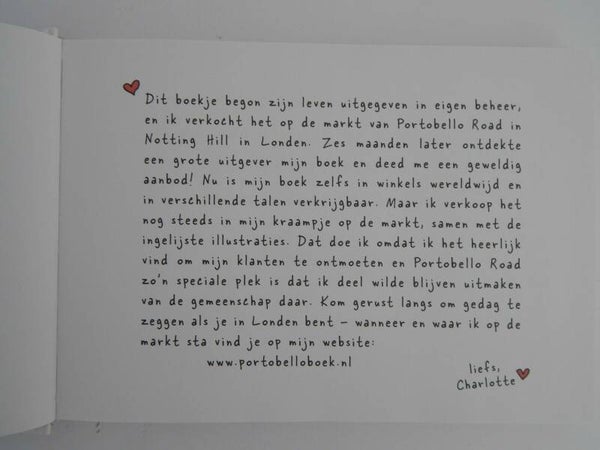 Dit boekje begon zijn leven uitgegeven in eigen beheer,
en ik verkocht het op de markt van Portobello Road in
Notting Hill in Londen. Zes maanden later ontdekte
een grote uitgever mijn boek en deed me een geweldig
aanbod! Nu is mijn boek zelfs in winkels wereldwijd en
in verschillende talen verkrijgbaar. Maar ik verkoop het
nog steeds in mijn kraampje op de markt, samen met de
ingelijste illustraties. Dat doe ik omdat ik het heerlijk
vind om mijn klanten te ontmoeten en Portobello Road
zo'n speciale plek is dat ik deel wilde blijven uitmaken
van de gemeenschap daar. Kom gerust langs om gedag te
zeggen als je in Londen bent – wanneer en waar ik op de
markt sta vind je op mijn website:
www.portobelloboek.nl
liefs,
Charlotte